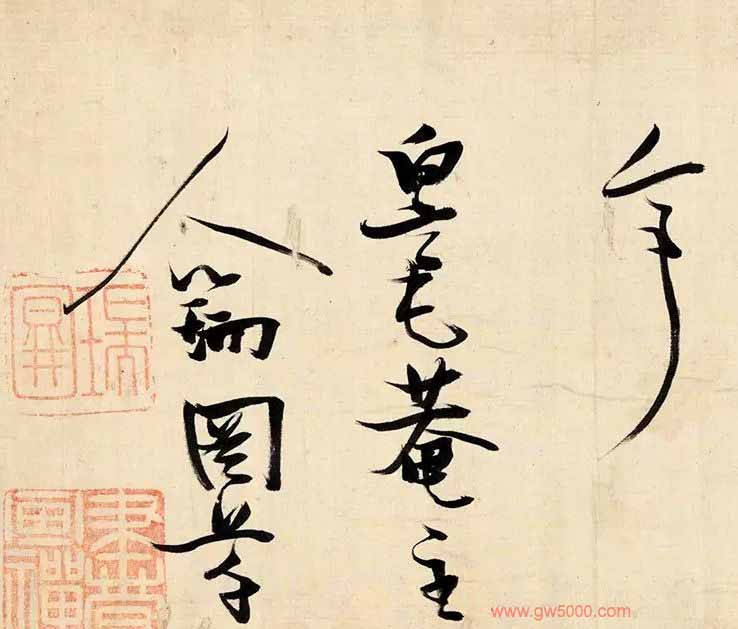 年
白毫菴主
人瑞圖
www.gw5000.com